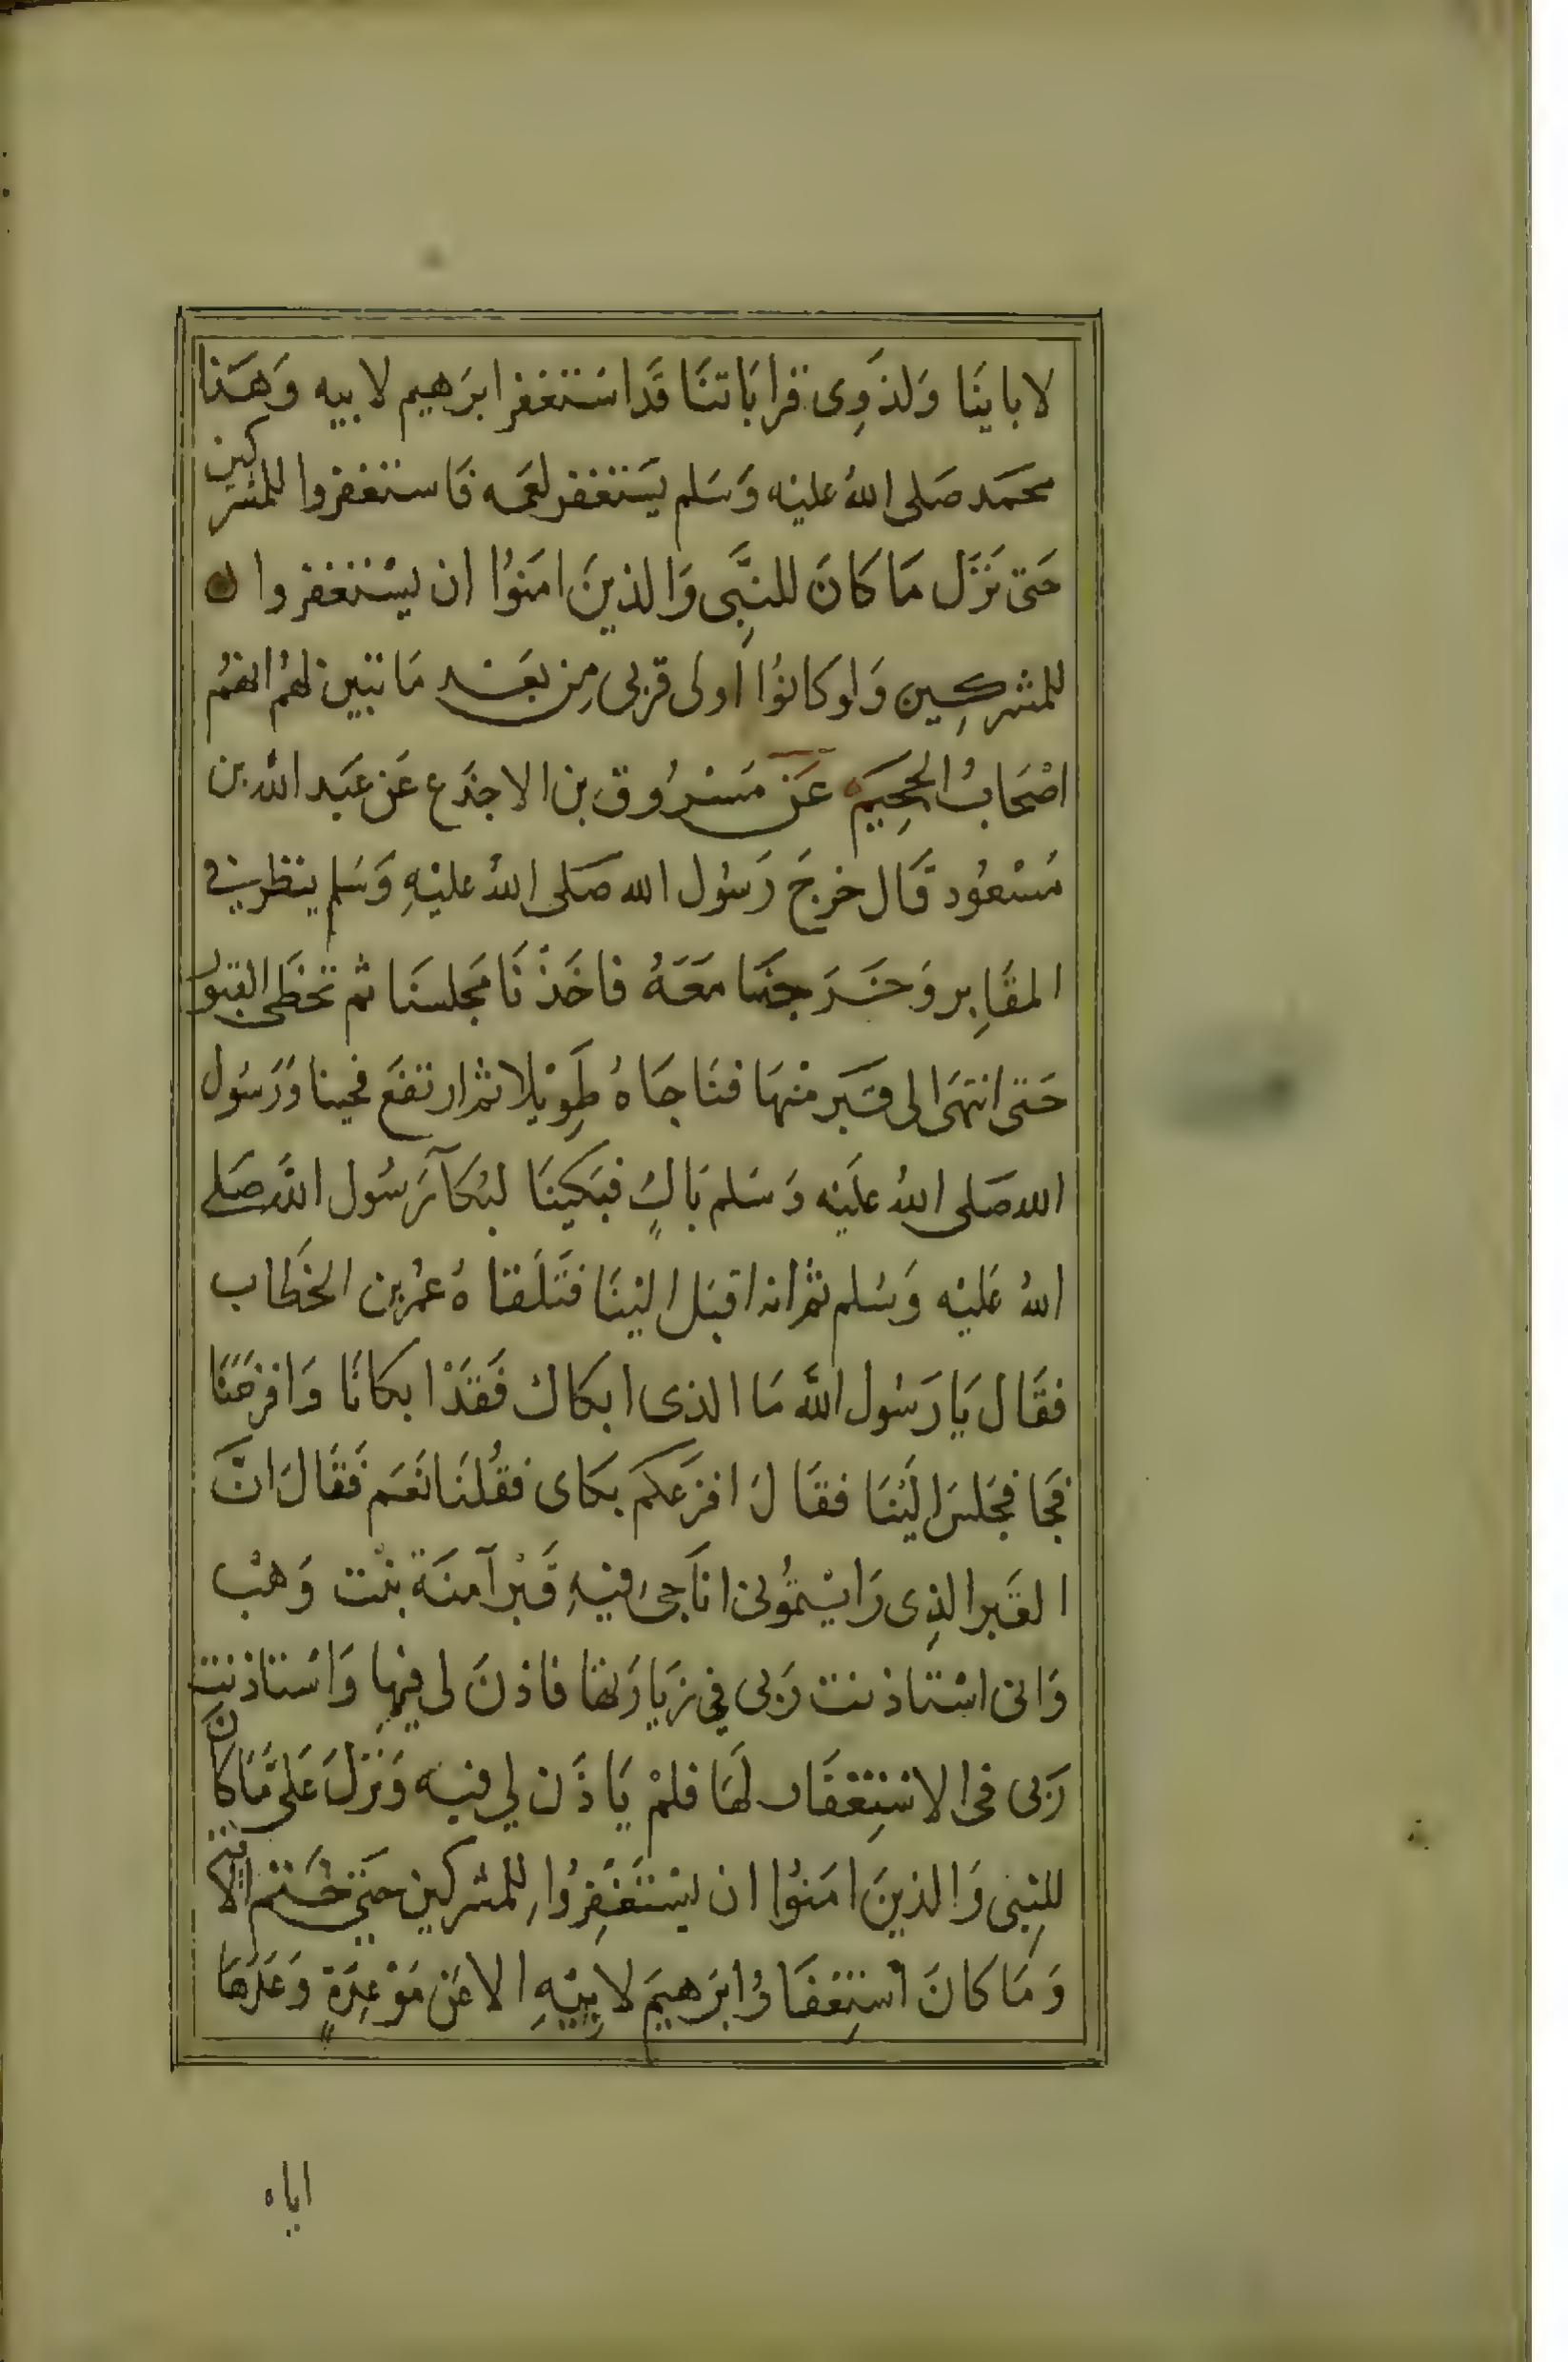 لاباينَا وَلذَوِى قرابَاتنَا قَداسَتغفرابرَهيم لابيه وَهَذا
محمَد صَلى اللهُ عليْه وَسَلم يَستغفرلعَمه فَاستغفروا للمشركين
حَتى نَزَل مَا كَانَ للنبِّى وَالذينَ امَنوُا ان يسْتغفروا ن
للمشركِين وَلوكانوُا اولى قربى مِن بعَد مَا تبين لهمُ انهمُ
اصْحَابُ الجحِيَم عَن مَسْرُوق بن الاجدَع عَن عَبَد الله بن
مَسْعوُد قَال خرجَ رَسُول الله صَلى اللهُ عليْهِ وَسَلم ينظر في
المقَابِر وَخَرَجنَا مَعَهُ فاخَذْنَا مَجلسنَا ثم تخطَى القبور
حَتى انتهَى الى قبَر منْهَا فنَاجَاهُ طَوِيْلا ثم ارتفعَ نحيبا وَرَسُول
الله صَلى اللهُ عليَه وَسَلم بَاكٍ فبَكينَا لبُكآء رَسُول اللهَ صَلى
اللهُ عَليْه وَسَلم ثم انه اقبَل اليْنَا فتَلَقاهُ عمُر بن الخَطاب
فقَال يَا رَسُول اللهَ مَا الذى ابكاك فَقدَ ابكانَا وَافزعَنَا
فجَا فجَلسَ اليْنَا فقَالَ افزعَكم بكاى فقُلنَا نعَم فَقَالَ انَّ
القَبر الذِى رَايْتموُنى اناَجى فيْهِ قَبْر آمنَة بنْت وَهْب
وَانى اسْتاذنت رَبى فِي زيَارَتها فاذنَ لى فيها وَاسْتاذنت
رَبى فى الاسْتِغفَار لهَا فلمْ يَاذَن لي فيه وَنَزلَ عَلىَّ مَا كانَ
للنبِى وَالذينَ امَنوُا ان يسْتَغفِروُا للمشركين حَتى خَتم الاية
وَمَا كانَ اسْتِغفَارُ ابرَهيمَ لابِيْهِ الا عَن مَوْعِدَةٍ وَعَدَهَا
اياه